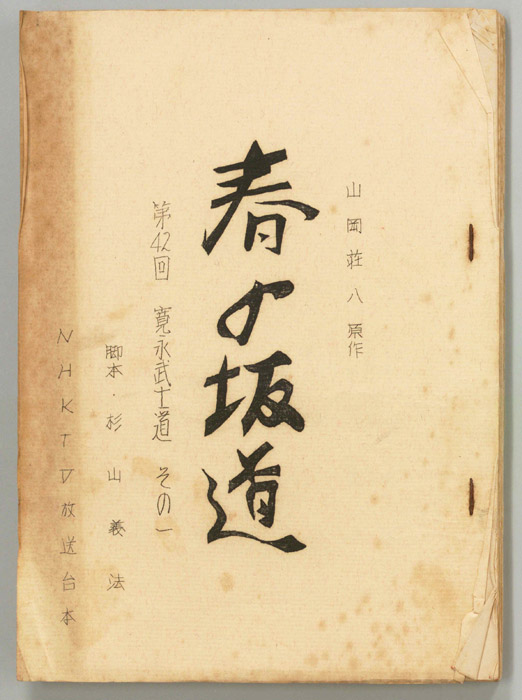 山岡荘八 原作
春の坂道
第42回 寛永武士道 その一
脚本・杉山義法
NHKTV放送台本